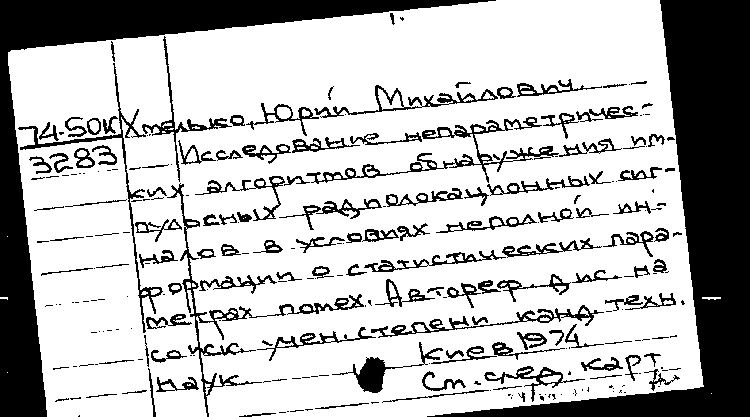 1.
74-50К Хмелько, Юрий Михайлович.
3283 Исследование непараметричес-
ких алгоритмов обнаружения им-
пульсных радиолокационных сиг-
налов в условиях неполной ин-
формации о статистических пара-
метрах помех. Автореф. дис. на
соиск. учен. степени канд. техн.
наук. Киев, 1974.
См. след. карт